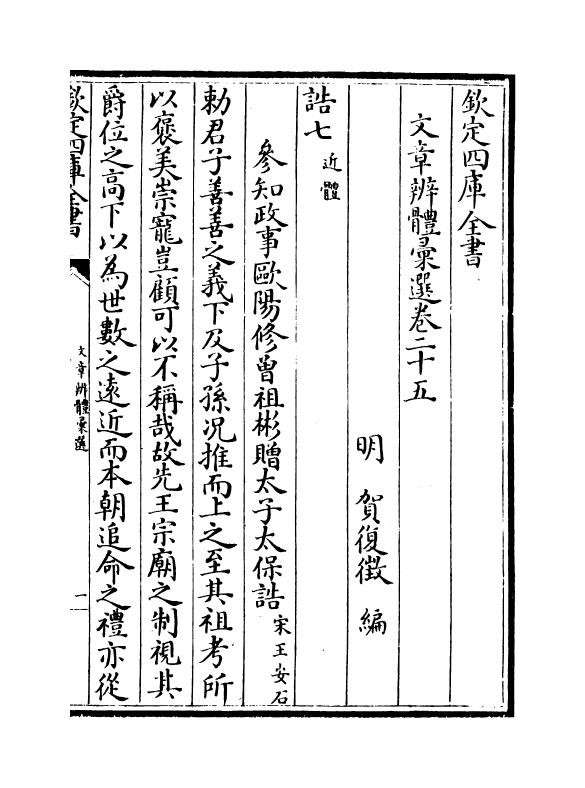 欽定四庫全書
文章辨體彚選卷二十五
明　賀復徵　編
誥七近體
參知政事歐陽修曾祖彬贈太子太保誥宋王安石
勅君子善善之義下及子孫况推而上之至其祖考所
以褒美崇寵豈顧可以不稱哉故先王宗廟之制視其
爵位之高下以為世數之遠近而本朝追命之禮亦從
欽定四庫全書
文章辨體彚選
一